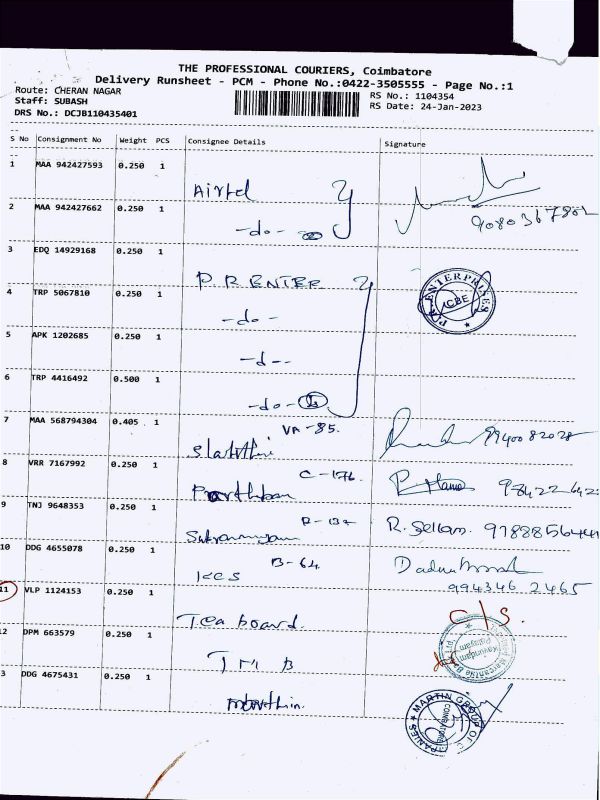 THE PROFESSIONAL COURIERS, Coimbatore
Delivery Runsheet - PCM - Phone No.:0422-3505555 - Page No.:1
Route: CHERAN NAGAR
Staff: SUBASH
DRS No.: DCJB110435401
RS No.: 1104354
RS Date: 24-Jan-2023
S No Consignment No Weight PCS Consignee Details Signature
1 MAA 942427593 0.250 1 Airtel
2 MAA 942427662 0.250 1 -do-
3 EDQ 14929168 0.250 1 P.R. ENTER
PR ENTERPRISES CBE
4 TRP 5067810 0.250 1 -do-
5 APK 1202685 0.250 1 -d--
6 TRP 4416492 0.500 1 -do-
7 MAA 568794304 0.405 1 VA-85. 9940082028
8 VRR 7167992 0.250 1 C-176
9 TNJ 9648353 0.250 1 R-134 R.
10 DDG 4655078 0.250 1 KCS B-64
994346 2465
11 VLP 1124153 0.250 1 Tea board. C/S.
12 DPM 663579 0.250 1
13 DDG 4675431 0.250 1
MARTIN GROUP OF COIMBATORE